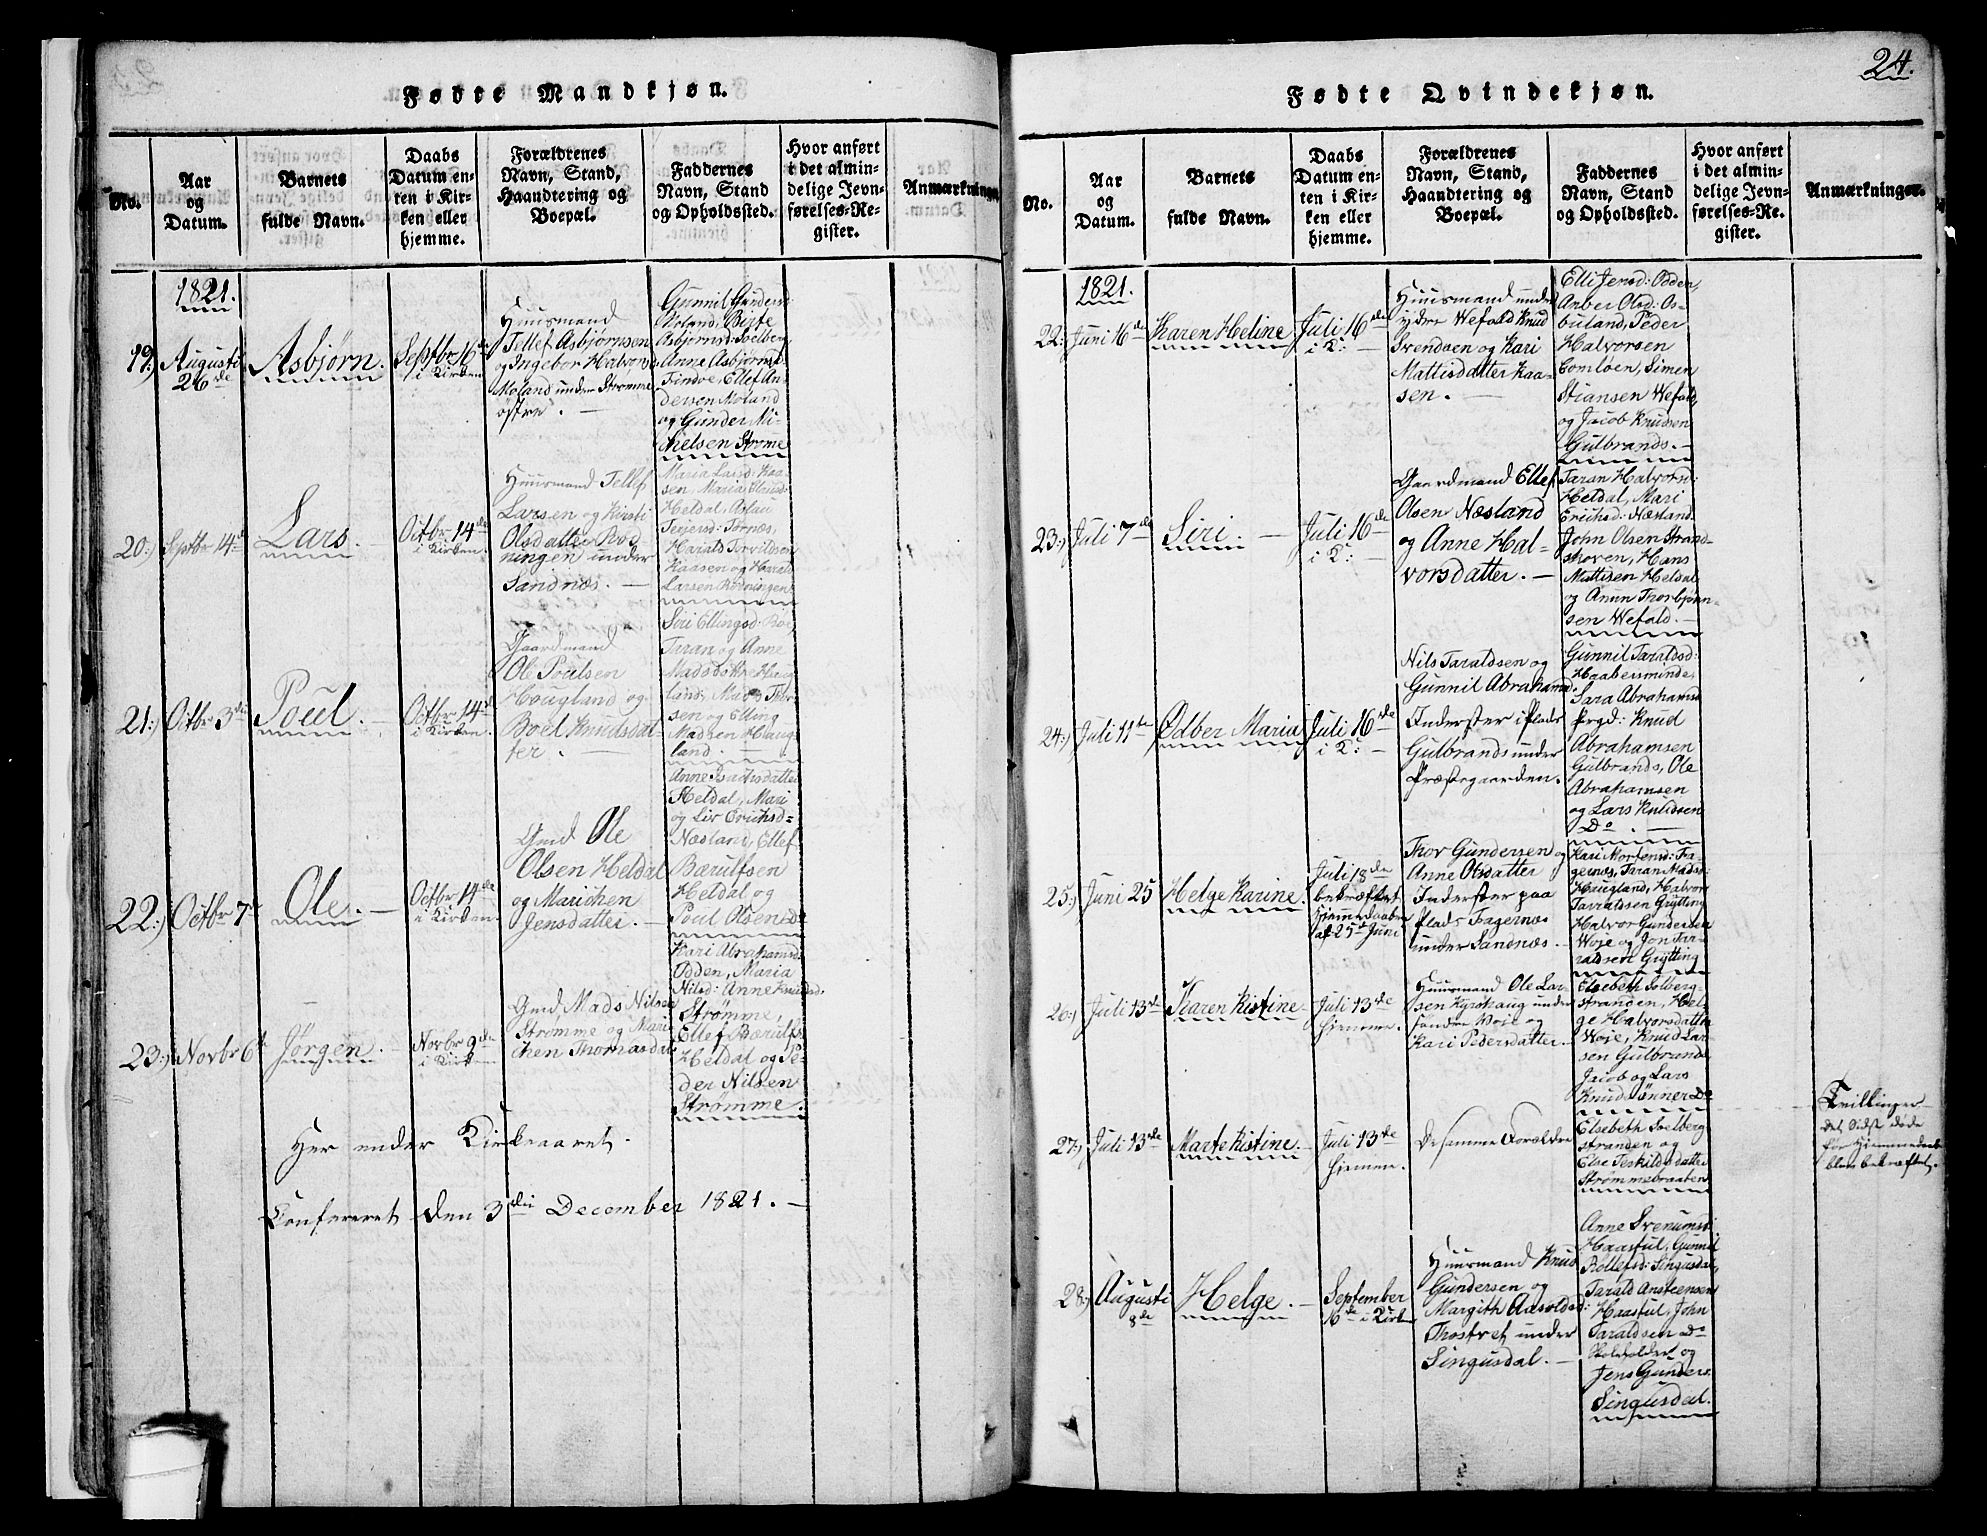 24.
Fødte Mandkjøn.
No.
Aar
og
Datum.
Barnets
fulde Navn.
Daabs
Datum en-
ten i Kir-
ken eller
hjemme.
Forældrenes
Navn, Stand,
Haandtering og
Boepæl.
Faddernes
Navn, Stand
og Opholdssted.
Hvor anført
i det almin-
delige Jevn-
førelses-Re-
gister.
Anmærkninger.
1821.
19:)
Augusti
26de
Asbjørn.
Septbr 16de
i Kirken
Huusmand
Tellef Asbjørnsen
og Ingebor Halvors
Moland under Strømme
østre. —
Gunnil Gunders
Moland, Birte
Asbjørnsd: Solberg
Anne Asbjørnsd:
Findve, Ellef An-
dersen Moland
og Gunder Ni-
chelsen Strøme
20:)
Septbr 14de
Lars.
Octbr 14de
i Kirken.
Huusmand Tellef
Larsen og Kirsti
Olsdatter Rod-
ningen under
Sandnæs. —
Maria Larsd: Kaa-
sen, Maria
Heldal, Aslau
Terjersd: Tornæs,
Harald Torvildsen
Kaasen og Harald
Larsen Rodningen
21:)
Octbr 3de
Poul. —
Octbr 14de
i Kirken.
Gaardmand
Ole Poulsen
Hougland og
Boel Knudsdat-
ter. —
Siri Ellingsd: Roe,
Taran og Anne
Madsdøttre Haug-
land, Mads Thor-
sen og Elling
Madsen Haug-
land. —
22:)
Octbr 7de
Ole. —
Octbr 14de
i Kirken
Gmd Ole
Olsen Heldal
og Marichen
Jensdatter. —
Anne Isachsdatter
Heldal, Mari
og Liv Erichsd=
Næsland, Ellef
Bærulfsen
Heldal og
Poul Olsen Do
23:)
Novbr 6te
Jørgen. —
Novbr 9de
i Kirken
Gmd Mads Nilsen
Strømme og Mari-
chen Thomasdat:
Kari Abrahamsd:
Odden, Maria
Nilsd: Anne Knudsd:
Strømme,
Ellef Bærulfs:
Heldal og Pe-
der Nilsen
Strømme.
Her ender Kirkeaaret.
Confereret den 3die December 1821. —
Fødte Qvindekjøn.
No.
Aar
og
Datum.
Barnets
fulde Navn.
Daabs
Datum en-
ten i Kir-
ken eller
hjemme.
Forældrenes
Navn, Stand,
Haandtering og
Boepæl.
Faddernes
Navn, Stand
og Opholdssted.
Hvor anført
i det almin-
delige Jevn-
førelses-Re-
gister.
Anmærkninger.
1821.
22:)
Juni 16de
Karen Heline
Juli 16de
i K: —
Huusmand under
ydre Wefald Knud
Svendsen og Kari
Mattisdatter Kaa-
sen. —
Elli Jensd: Odden,
Anber Olsd: Os-
buland, Peder
Halvorsen
Tomtøen, Simen
Stiansen Wefald,
og Jacob Knudsen
Gulbrands. —
23:)
Juli 7de
Siri. —
Juli 16de
i K: —
Gaardmand Ellef
Olsen Næsland
og Anne Hal-
vorsdatter. —
Taran Halvorsd:
Heldal, Mari
Erichsd: Næsland
John Olsen Strand-
skoven, Hans
Mattisen Heldal
og Anun Thorbjørn-
sen Wefald. —
24:)
Juli 11te
Odber Maria
Juli 16de
i K: —
Nils Taraldsen og
Gunnil Abrahamsd
Inderster i Plads
Gulbrands under
Præstegaarden.
Gunnil Taraldsd:
Haabesminde,
Sara Abrahamsd
Prgd: Knud
Abrahamsen
Gulbrands, Ole
Abrahamsen
og Lars Knudsen
Do. —
25:)
Juni 25
Helge Karine.
Juli 18de
bekræftet
hjemmedaaben
af 25de Juni
Thor Gundersen og
Anne Olsdatter
Inderster paa
Plads Fagernæs
under Sandnæs.
Kari Mortensd: Fa-
gernæs, Taran Madsd:
Haugland, Halvor
Taraldsen Grytting
Halvor Gundersen
Woje og Jon Ta-
raldsen Grytting
26:)
Juli 13de
Karen Kistine
Juli 13de
hjemme.
Huusmand Ole Lar-
sen Kyrshaug under
søndre Woje og
Kari Pedersdatter.
Elsebeth Solberg-
stranden, Hel-
ge Halvorsdatter
Woje, Knud Lar-
sen Gulbrands
Jacob og Lars
Knudsønner Do
27:)
Juli 13de
Marte Kistine. —
Juli 13de
hjemme.
De samme Forældre
Elsebeth Soelberg-
stranden og
Else Teskildsdatter
Strømmebraaten
Tvillinger
det sidst døde
før Hjemmedaaben
blev bekræftet.
28:)
Augusti
8de
Helge. —
September
16de i Kirken
Huusmand Knud
Gundersen og
Margith Aasoldsd:
Thostvet under
Singusdal. —
Anne Svenumsd:
Haasful, Gunnil
Rollefsd: Singusdal,
Tarald Ansteensen
Haasful, John
Taraldsen Do
Skoleholder og
Jens Gunders
Singusdal.